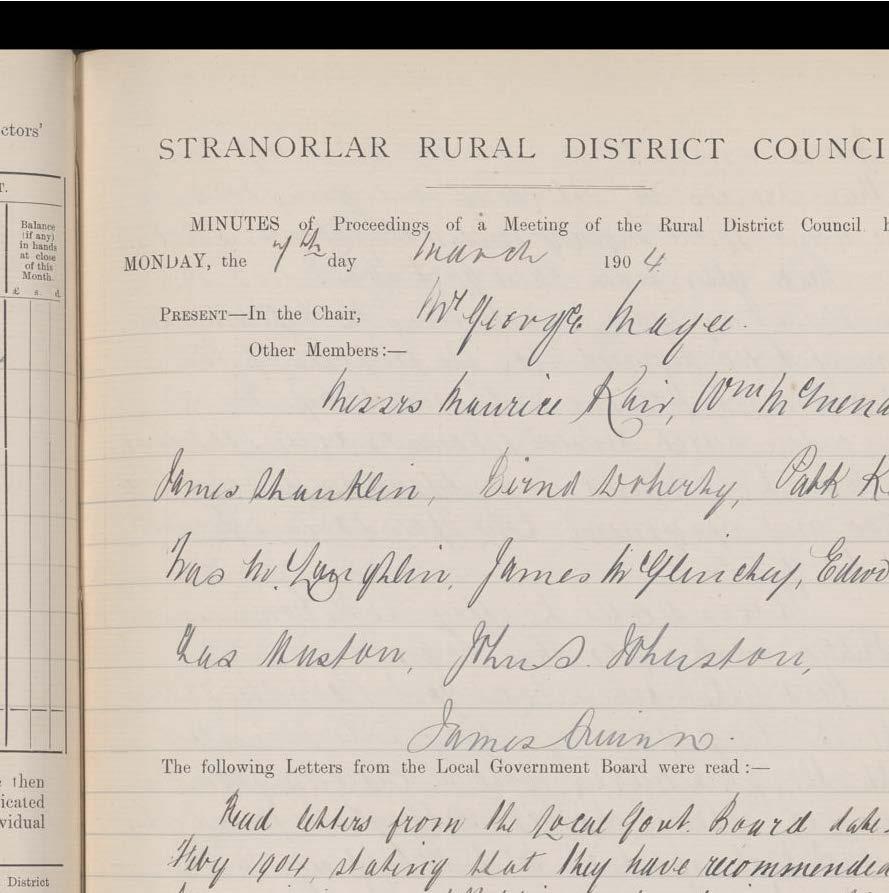 ctors'
T.
Balance
(if any)
in hands
at close
of this
Month.
£ s. d.
then
icated
vidual
District
STRANORLAR RURAL DISTRICT COUNCI
MINUTES of Proceedings of a Meeting of the Rural District Council h
MONDAY, the 7th day March 1904
PRESENT—In the Chair, Mr George Magee.
Other Members:—
Messrs Maurice Kair, Wm
James Shanklin, Bernd Doherty, Patk K
McLaughlin, James McGlinchey, Edwd
Huston, John S. Johnston,
James Quinn.
The following Letters from the Local Government Board were read:—
Read letters from the Local Govt. Board
Feby 1904, stating that they have recommended